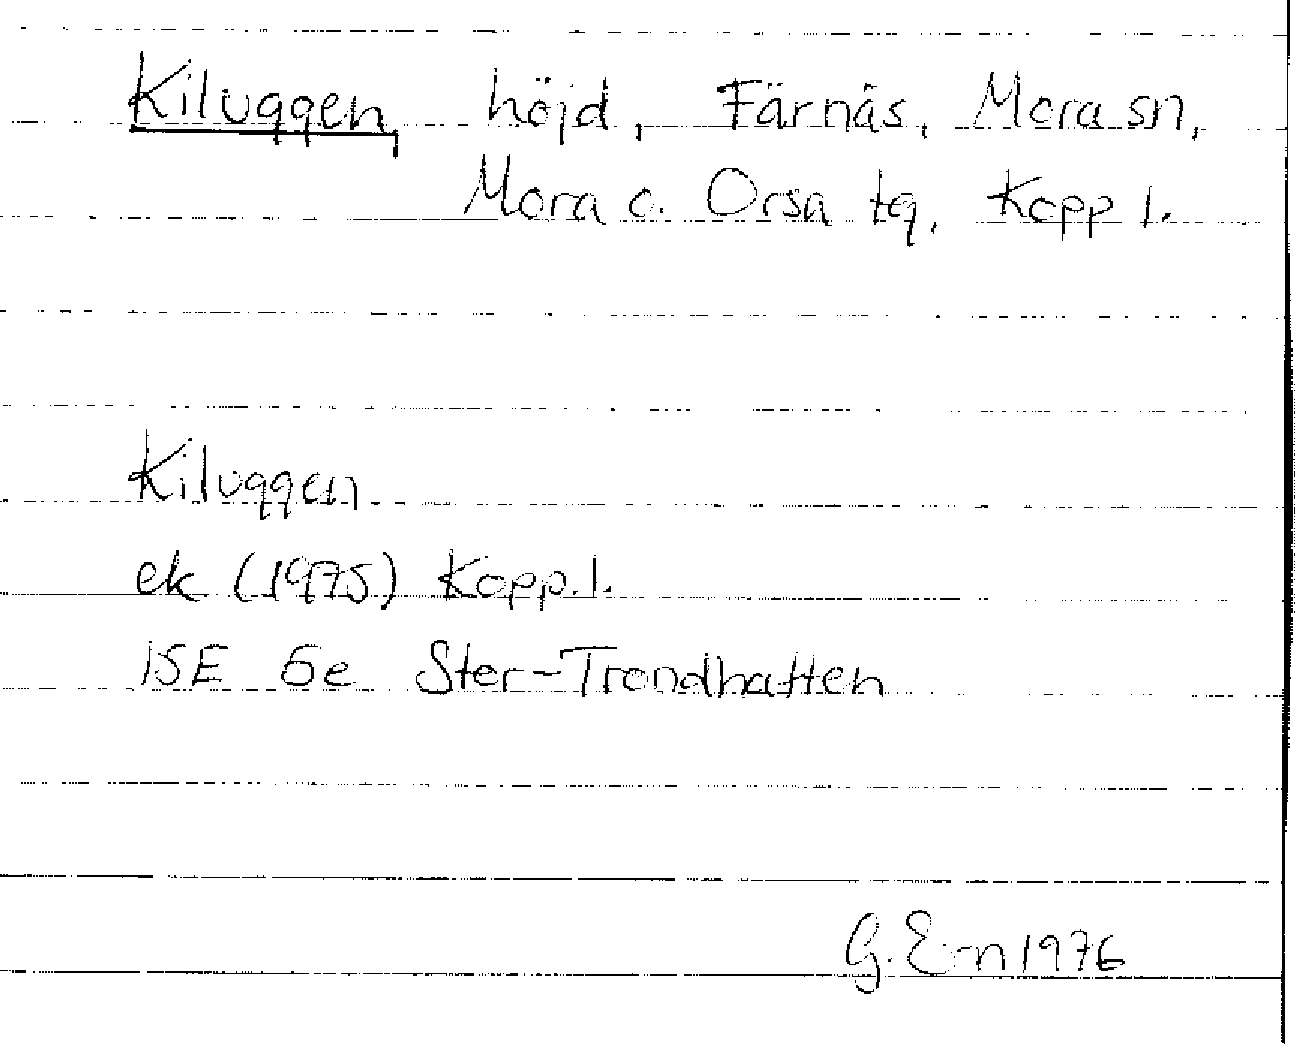 Kiluggen, höjd, Färnäs, Mora sn,
Mora o. Orsa tg, Kopp l.
Kiluggen
ek (1975) Kopp.l.
15E 6e Ster-Trondhatten
G. Ern 1976